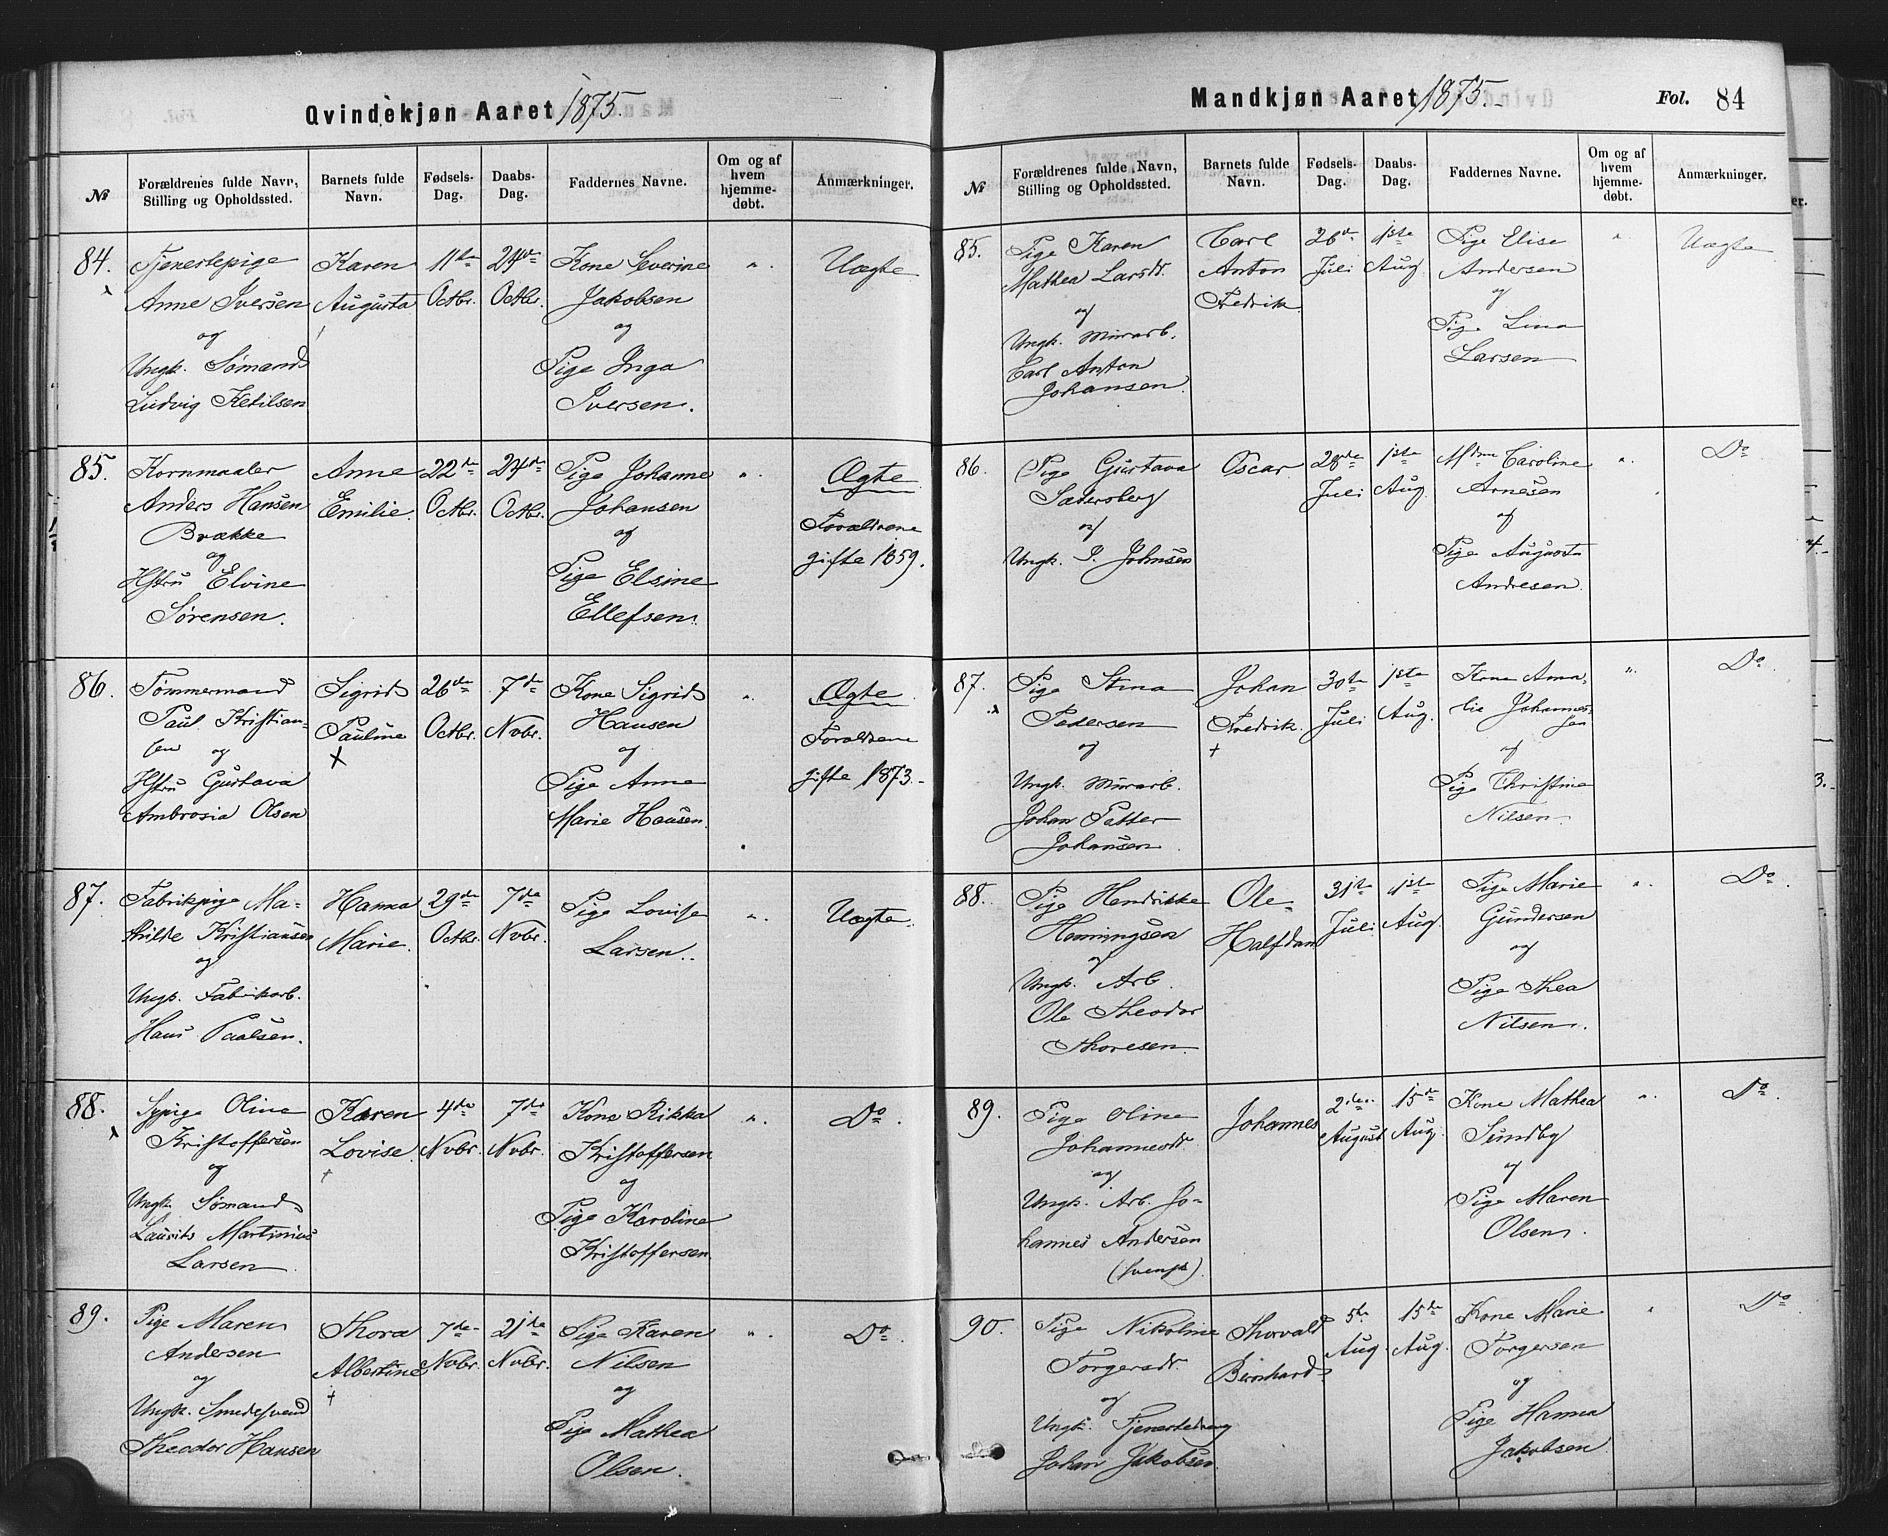 Qvindekjøn Aaret 1875.
№
Forældrenes fulde Navn, Stilling og Opholdssted.
Barnets fulde Navn.
Fødsels-Dag.
Daabs-Dag.
Faddernes Navne.
Om og af hvem hjemme-døbt.
Anmærkninger.
84.
Tjenestepige
Anne Iversen
og
Ungk. Sømand
Ludvig Ketilsen
Karen
Augusta
11te
Octbr.
24de
Octbr.
Kone Severine
Jakobsen
og
Pige Inga
Iversen.
"
Uægte
85.
Kornmaaler
Anders Hansen
Brække
og
Hstru Elvine
Sørensen.
Anne
Emilie.
22de
Octbr.
24de
Octbr.
Pige Johanne
Johansen
og
Pige Elsine
Ellefsen.
"
Ægte
Forældrene
gifte 1859.
86.
Tømmermand
Paul Kristian-
sen og
Hstru Gustava
Ambrosia Olsen
Sigrid
Pauline
+
26de
Octbr.
7de
Nvbr.
Kone Sigrid
Hansen
og
Pige Anne
Marie Hansen.
"
Ægte
Forældrene
gifte 1873.
87.
Fabrikpige Ma-
thilde Kristiansen
og
Ungk. Fabrikarb.
Hans Paulsen.
Hanna
Marie.
29de
Octbr.
7de
Nvbr.
Pige Lovise
Larsen.
"
Uægte.
88.
Sypige Oline
Kristoffersen
og
Ungk. Sømand
Laurits Martinius
Larsen
Karen
Lovise.
+
4de
Nvbr.
7de
Nvbr.
Kone Rikka
Kristoffersen
og
Pige Karoline
Kristoffersen.
"
Do.
89.
Pige Maren
Andersen
og
Ungk. Smedesvend
Theodor Hansen
Thora
Albertine
+
7de
Nvbr.
21de
Nvbr.
Pige Karen
Nilsen
og
Pige Mathea
Olsen.
"
Do.
Mandkjøn Aaret 1875.
Fol. 84
№
Forældrenes fulde Navn, Stilling og Opholdssted.
Barnets fulde Navn.
Fødsels-Dag.
Daabs-Dag.
Faddernes Navne.
Om og af hvem hjemme-døbt.
Anmærkninger.
85.
Pige Karen
Mathea Larsdt.
og
Ungk. Murarb.
Carl Anton
Johansen.
Carl
Anton
Fredrik
26de
Juli
1ste
Aug.
Pige Elise
Andersen
og
Pige Lina
Larsen
"
Uægte
86.
Pige Gustava
Sætersberg
og
Ungk. P. Johnsen
Oscar
28de
Juli
1ste
Aug.
Mdme Caroline
Arnesen
og
Pige Augusta
Andresen.
"
Do
87.
Pige Stina
Pedersen
og
Ungk. Murarb.
Johan Petter
Johansen.
Johan
Fredrik.
+
30te
Juli
1ste
Aug.
Kone Ama-
lie Johannes-
sen
og
Pige Christine
Nilsen.
"
Do.
88.
Pige Hendrikke
Henningsen
og
Ungk. Arb.
Ole Theodor
Thoresen.
Ole
Halfdan
31te
Juli
1ste
Aug.
Pige Marie
Gundersen
og
Pige Thea
Nilsen.
"
Do.
89.
Pige Oline
Johannesdt.
og
Ungk. Arb. Jo-
hannes Andersen
(svensk).
Johannes
2den
August
15de
Aug.
Kone Mathea
Sundby
og
Pige Maren
Olsen.
"
Do.
90.
Pige Nikoline
Torgersdt.
og
Ungk. Tjenestedreng
Johan Jakobsen.
Thorvald
Bernhard
5te
Aug.
15de
Aug.
Kone Marie
Torgersen
og
Pige Hanna
Jakobsen.
"
Do